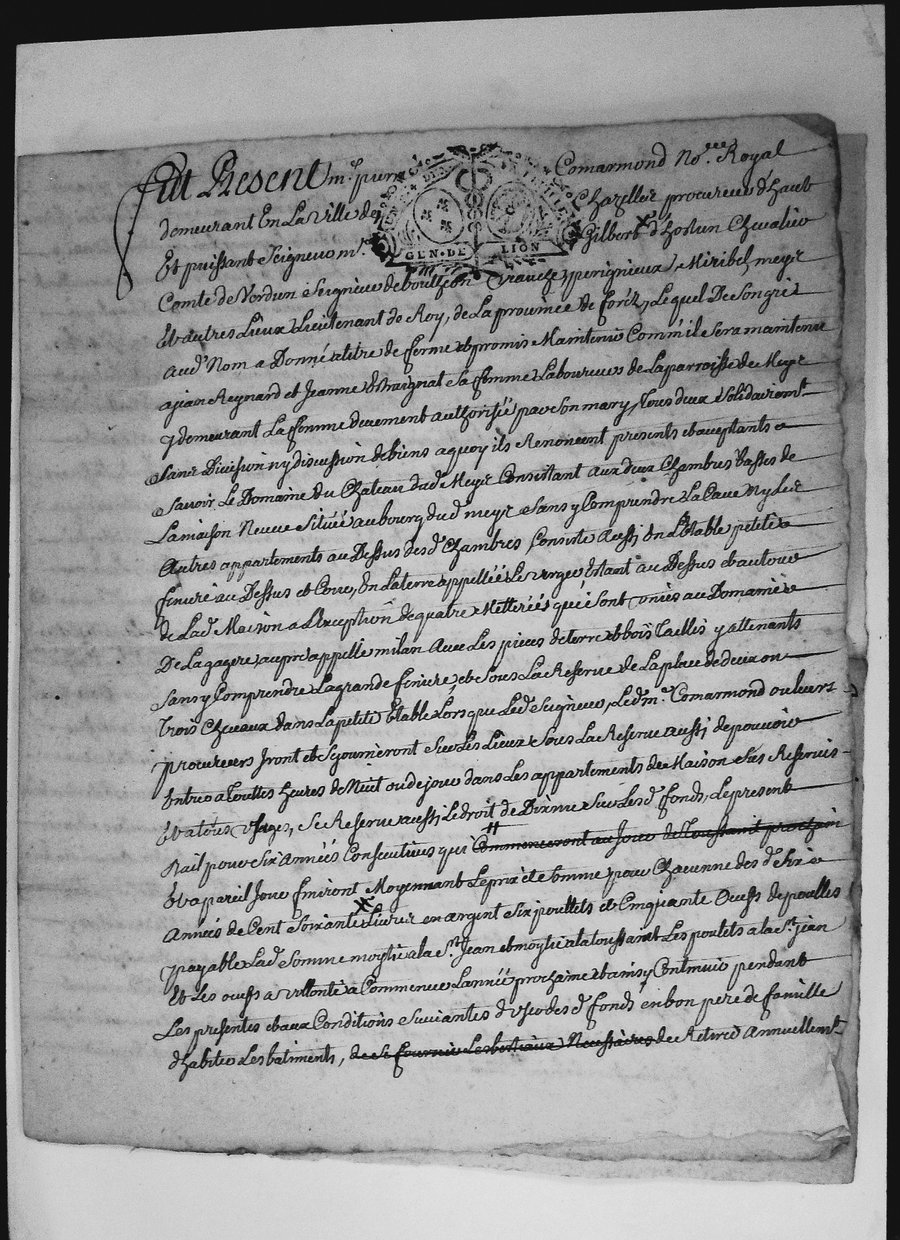 Fut Present m.e pierre Comarmond No.re Royal
demeurant En La ville de Chazelles procureur d'haut
Et puissant Seigneur m.e Gilbert d'hostun Chevalier
Comte de Verdun Seigneur de boutheon veauche perignieux Miribel meyz
Et autres Lieux Lieutenant de Roy, de La province de forêz, Lequel De Son gré
aud. Nom a Donné a titre de ferme et promis Maintenir Comm'il Sera maintenu
a jean Reynard et Jeanne Sa femme Laboureurs de La parroisse de Meyz
y demeurant La femme deuement authorisée par Son mary, Tous deux Solidairem.t
Sans Division ny discussion de biens a quoy ils Renoncent presents et aceptants
Savoir Le Domaine du Chateau dud. Meyz Consistant aux deux Chambres basses de
La maison Neuve Située au bourg dud. meyz Sans y Comprendre La Cave Ny Les
Autres appartements au Dessus desd. Chambres, Consiste aussi En L'Etable petite
feniere au Dessus et Cour, En La terre appellée Le verger Estant au Dessus et autour
de Lad. Maison a L'exception de quatre Metterées qui Sont unies au Domaine
De La gagere, au pré appellé milan Avec Les pieces de terre et bois Taillis y attenants
Sans y Comprendre La grande feniere et Sous La Reserve de La place de deux ou
Trois Chevaux dans La petite Etable Lorsque Led. Seigneur, Led. m.e Comarmond ou leurs
procureurs Iront et Sejourneront Sur Les Lieux Sous La Reserve aussi de pouvoir
Entrer a Touttes heures de Nuit ou de jour dans Les appartements de Maison Reservés
Et a tous usages, Se Reserve aussi Le droit de Dixme Sur Lesd. fonds, Le present
Bail pour Six Années Consecutives qui Commenceront au Jour de Toussaint prochain
Et a pareil Jour finiront Moyennant Le prix et Somme pour Chacune desd. Six
Années de Cent Soixante Livres en argent Six poullets et Cinquante Oeufs de poulles
payable Lad. Somme moytié a la S.t Jean et moytié a la toussaint Les poulets a la S.t jean
Et Les oeufs a vollonté a Commencer L'année prochaine et ainsy Continuer pendant
Les presentes et aux Conditions Suivantes d'user desd. fonds en bon pere de famille
d'habiter Les batiments, de Se fournir Les bestiaux Necessaires de Retirer Annuellem.t
GEN. DE LION